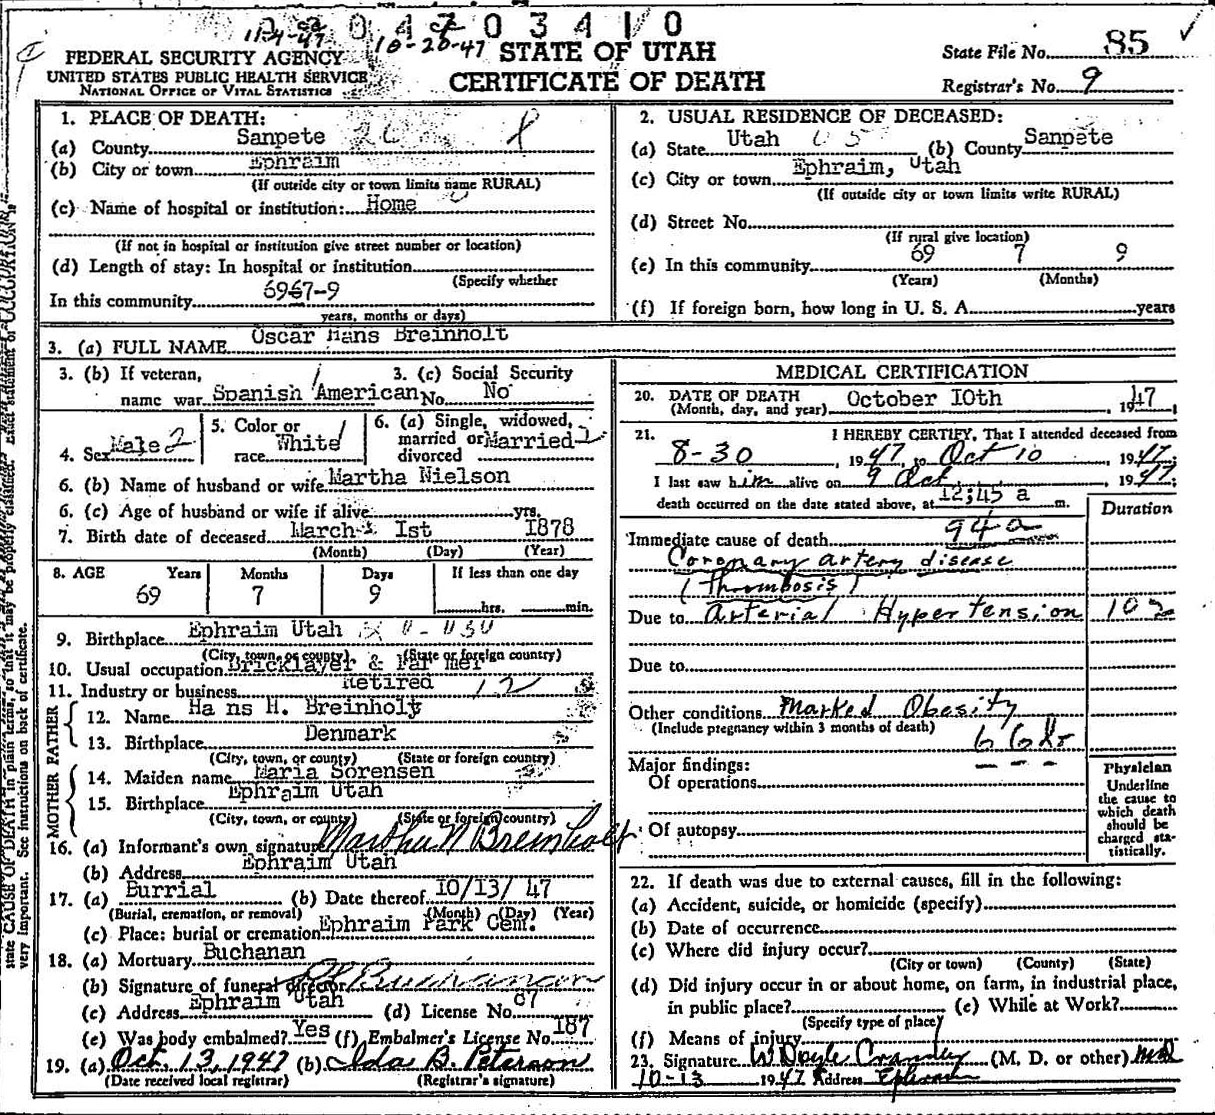 11-4-47 10-20-47 04703410
FEDERAL SECURITY AGENCY
UNITED STATES PUBLIC HEALTH SERVICE
NATIONAL OFFICE OF VITAL STATISTICS
STATE OF UTAH
CERTIFICATE OF DEATH
State File No. 85
Registrar's No. 9
1. PLACE OF DEATH:
(a) County Sanpete
(b) City or town Ephraim
(If outside city or town limits name RURAL)
(c) Name of hospital or institution: Home
(If not in hospital or institution give street number or location)
(d) Length of stay: In hospital or institution
(Specify whether
In this community 6967-9
years, months or days)
2. USUAL RESIDENCE OF DECEASED:
(a) State Utah (b) County Sanpete
(c) City or town Ephraim, Utah
(If outside city or town limits write RURAL)
(d) Street No.
(If rural give location)
(e) In this community 69 7 9
(Years) (Months)
(f) If foreign born, how long in U. S. A. years
3. (a) FULL NAME Oscar Hans Breinholt
3. (b) If veteran, 3. (c) Social Security
name war Spanish American No. No
4. Sex Male 2
5. Color or
race White
6. (a) Single, widowed,
married or Married
divorced
6. (b) Name of husband or wife Martha Nielson
6. (c) Age of husband or wife if alive yrs.
7. Birth date of deceased March Ist I878
(Month) (Day) (Year)
8. AGE Years Months Days If less than one day
69 7 9 hrs. min.
9. Birthplace Ephraim Utah
(City, town, or county) (State or foreign country)
10. Usual occupation Bricklayer & Far mer
11. Industry or business Retired 12
FATHER
12. Name Ha ns H. Breinholt
13. Birthplace Denmark
(City, town, or county) (State or foreign country)
MOTHER
14. Maiden name Maria Sorensen
15. Birthplace Ephraim Utah
(City, town, or county) (State or foreign country)
16. (a) Informant's own signature Martha N Breinholt
(b) Address Ephraim Utah
17. (a) Burrial (b) Date thereof IO/I3/ 47
(Burial, cremation, or removal) (Month) (Day) (Year)
(c) Place: burial or cremation Ephraim Park Cem.
18. (a) Mortuary Buchanan
(b) Signature of funeral director Buchanan
(c) Address Ephraim Utah (d) License No. 67
(e) Was body embalmed? Yes (f) Embalmer's License No. I87
19. (a) Oct. 13, 1947 (b) Ida B. Peterson
(Date received local registrar) (Registrar's signature)
MEDICAL CERTIFICATION
20. DATE OF DEATH October IOth, 1947
(Month, day, and year)
21. I HEREBY CERTIFY, That I attended deceased from
8-30, 1947 to Oct 10, 1947;
I last saw him alive on 9 Oct, 1947;
death occurred on the date stated above, at 12:45 a m.
Duration
94a
Immediate cause of death
Coronary artery disease
(Thrombosis)
Due to Arterial Hypertension 10
Due to
Other conditions Marked Obesity
(Include pregnancy within 3 months of death)
Major findings:
Of operations
Of autopsy
Physician
Underline
the cause to
which death
should be
charged sta-
tistically.
22. If death was due to external causes, fill in the following:
(a) Accident, suicide, or homicide (specify)
(b) Date of occurrence
(c) Where did injury occur?
(City or town) (County) (State)
(d) Did injury occur in or about home, on farm, in industrial place,
in public place? (e) While at Work?
(Specify type of place)
(f) Means of injury
23. Signature W Doyle Cranney (M. D. or other) MD
10-13 1947 Address Ephraim
state CAUSE OF DEATH in plain terms, so that it may be properly classified. Exact statement of OCCUPATION is
very important. See instructions on back of certificate.